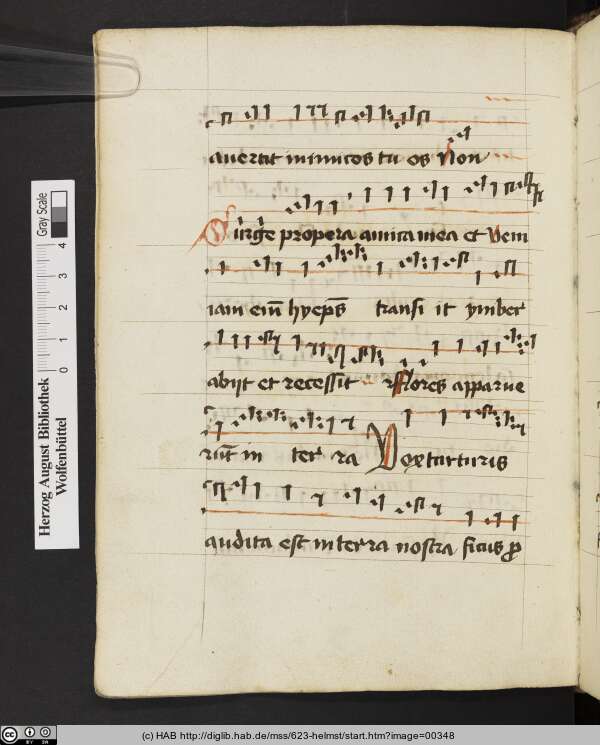 auertat inimicos tu os Non
Surge propera amica mea et veni
iam em̄ hyeps̄ transi it ymber
abijt et recessit flores apparue
rūt in ter ra Vox turturis
audita est in terra nostra ficus ꝓ
Gray Scale
0 1 2 3 4
Herzog August Bibliothek
Wolfenbüttel
(c) HAB http://diglib.hab.de/mss/623-helmst/start.htm?image=00348